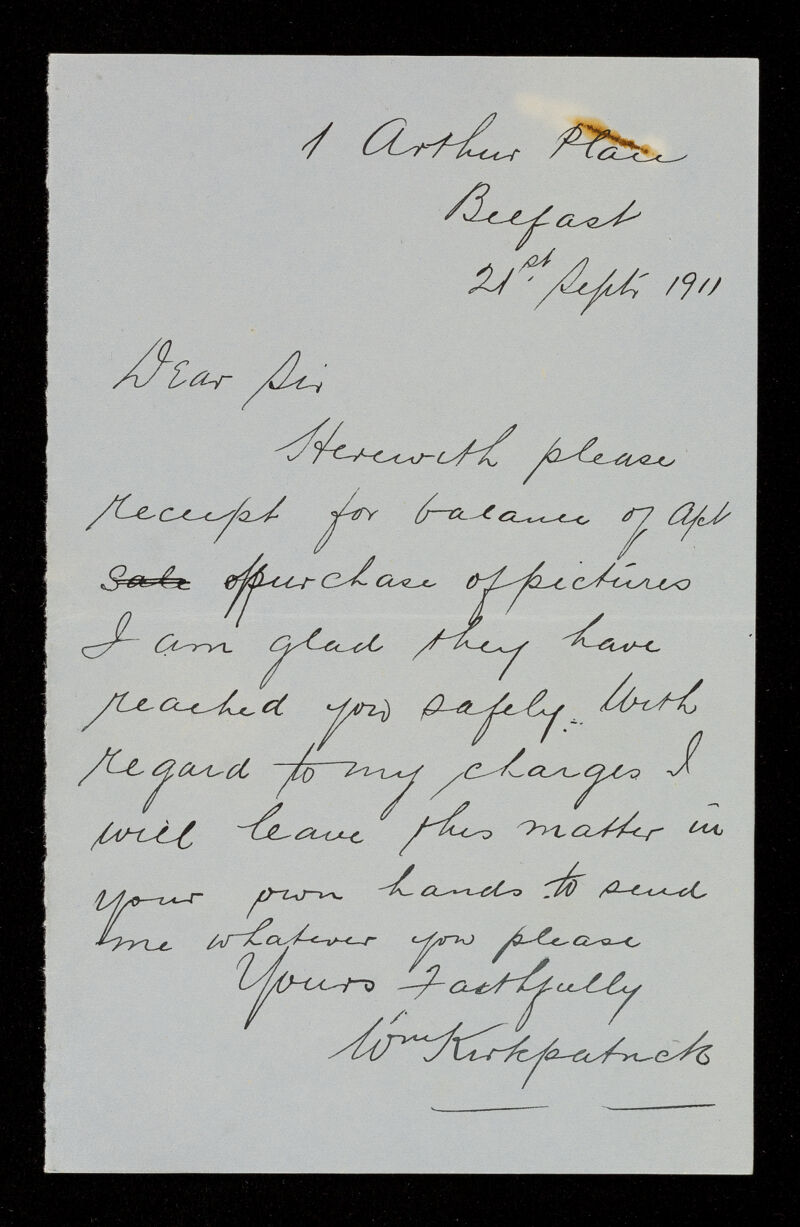 1 Arthur Place
Belfast
21st Septr 1911
Dear Sir
Herewith please
receipt for balance of a/ct
sale of purchase of pictures
I am glad they have
reached you safely. With
regard to my charges I
will leave this matter in
your own hands to send
me whatever you please
Yours Faithfully
Wm Kirkpatrick